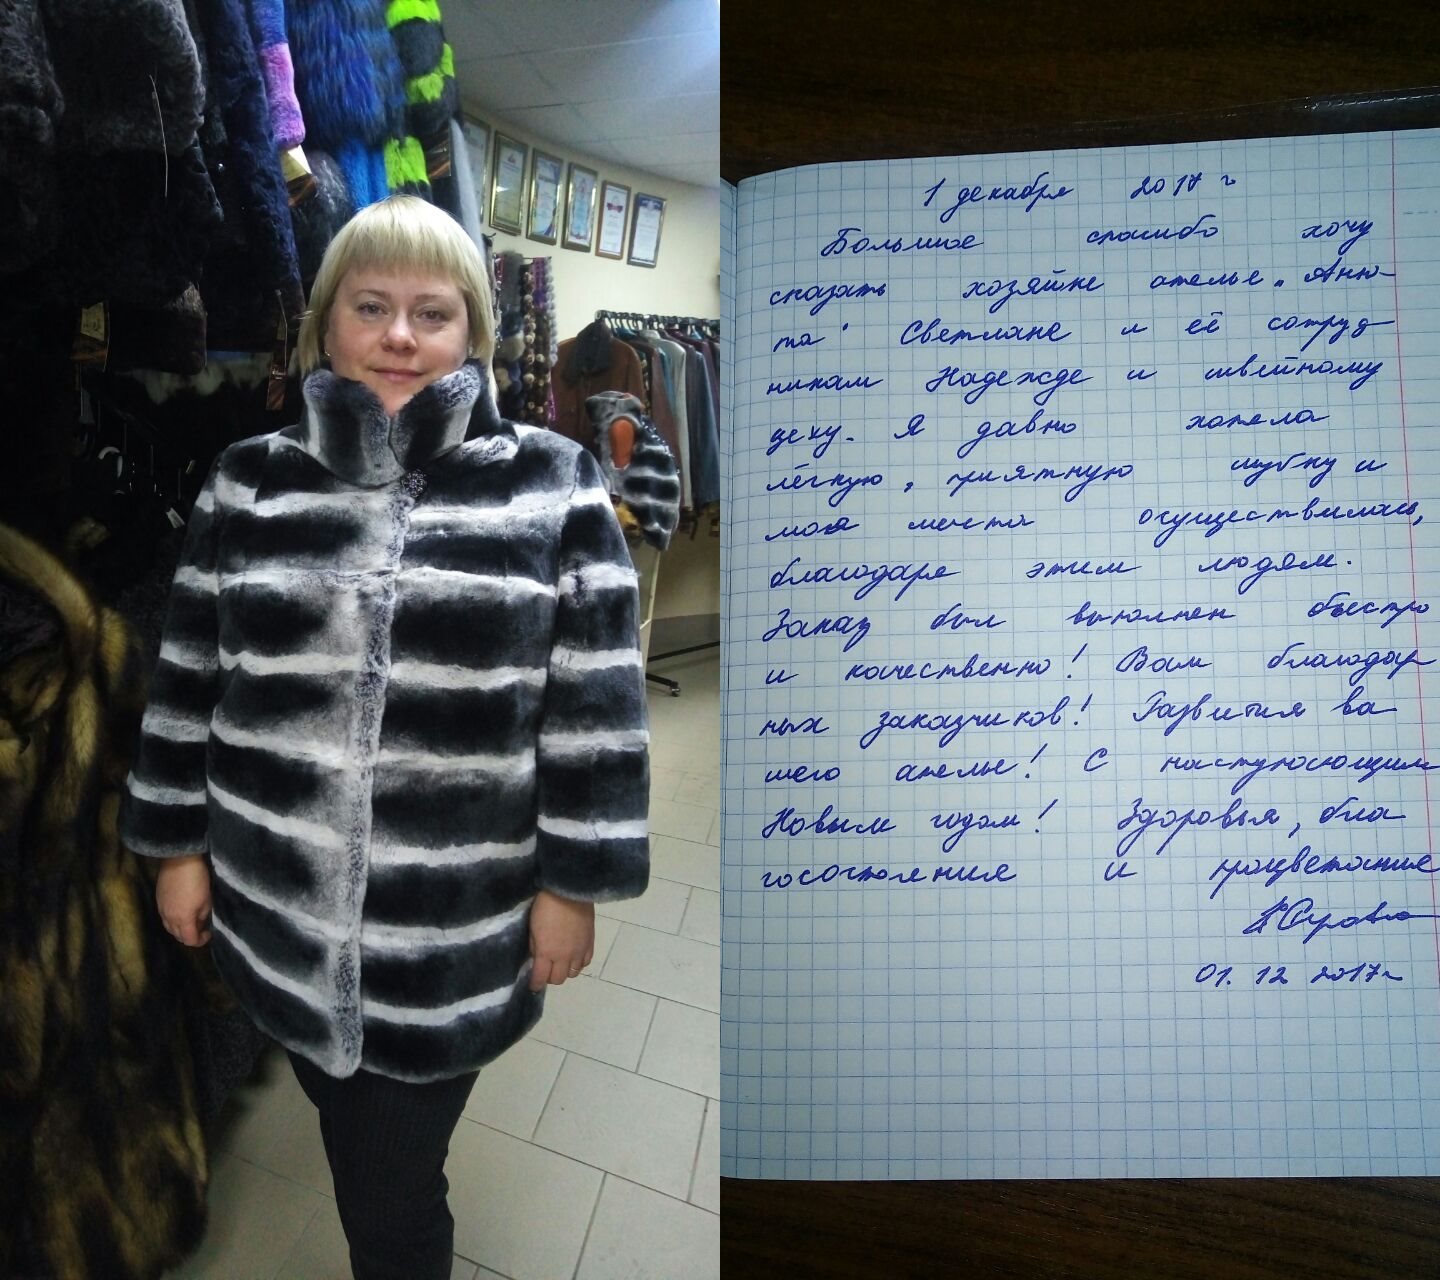 1 декабря 2017 г
Большое спасибо хочу
сказать хозяйке ателье „Аню-
та" Светлане и её сотруд
никам Надежде и швейному
цеху. Я давно хотела
лёгкую, приятную шубку и
моя мечта осуществилась,
благодаря этим людям.
Заказ был выполнен быстро
и качественно! Вам благодар
ных заказчиков! Развития ва
шего ателье! С наступающим
Новым годом! Здоровья, бла
госостояния и процветание
01.12 2017г